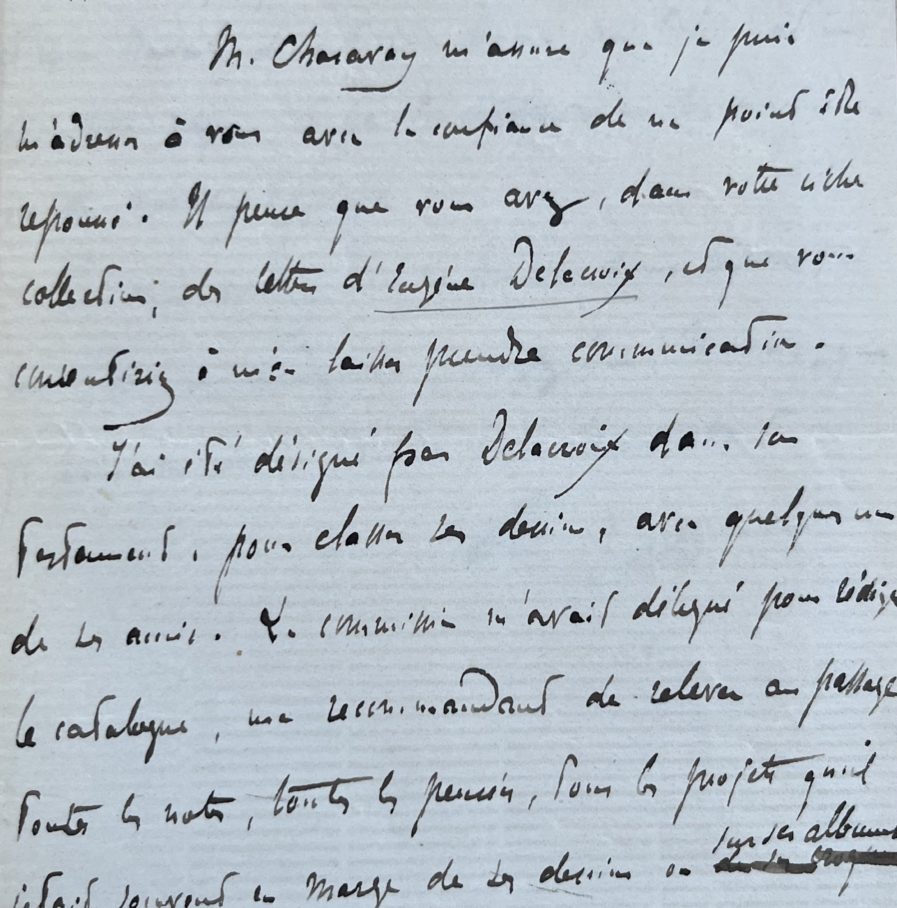 M. Charavay m'assure que je puis
m'adresser à vous avec la confiance de ne point être
repoussé. Il pense que vous avez, dans votre riche
collection, des lettres d'Eugène Delacroix, et que vous
consentiriez à m'en laisser prendre communication.
J'ai été désigné par Delacroix dans son
testament, pour classer ses dessins, avec quelques uns
de ses amis. La commission m'avait délégué pour rédiger
le catalogue, me recommandant de relever au passage
toutes les notes, toutes les pensées, tous les projets qu'il
jetait souvent en marge de ses dessins ou sur ses albums